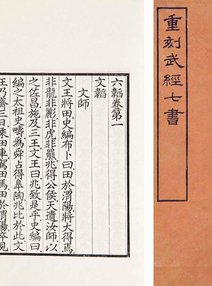 重刻武經七書
六韜卷第一
文韜
文師
文王將田史編布卜曰田於渭陽將大得焉
非龍非彲非虎非羆兆得公侯天遺汝師以
之佐昌施及三王文王曰兆致是乎史編曰
編之太祖史疇爲舜占得皋陶兆比於此文
王乃齋三日乘田車駕田馬田於渭陽卒見